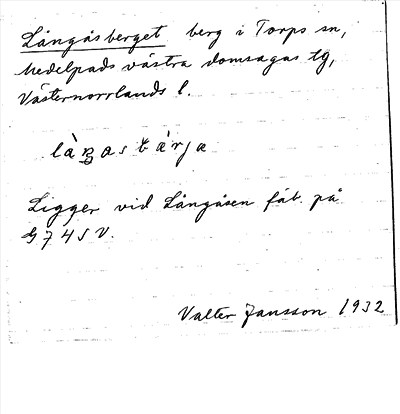 Långåsberget berg i Torps sn,
Medelpads västra domsagas tg,
Västernorrlands l.
Ligger vid Långåsen fäb. på
G 7 4 S V.
Valter Jansson 1932